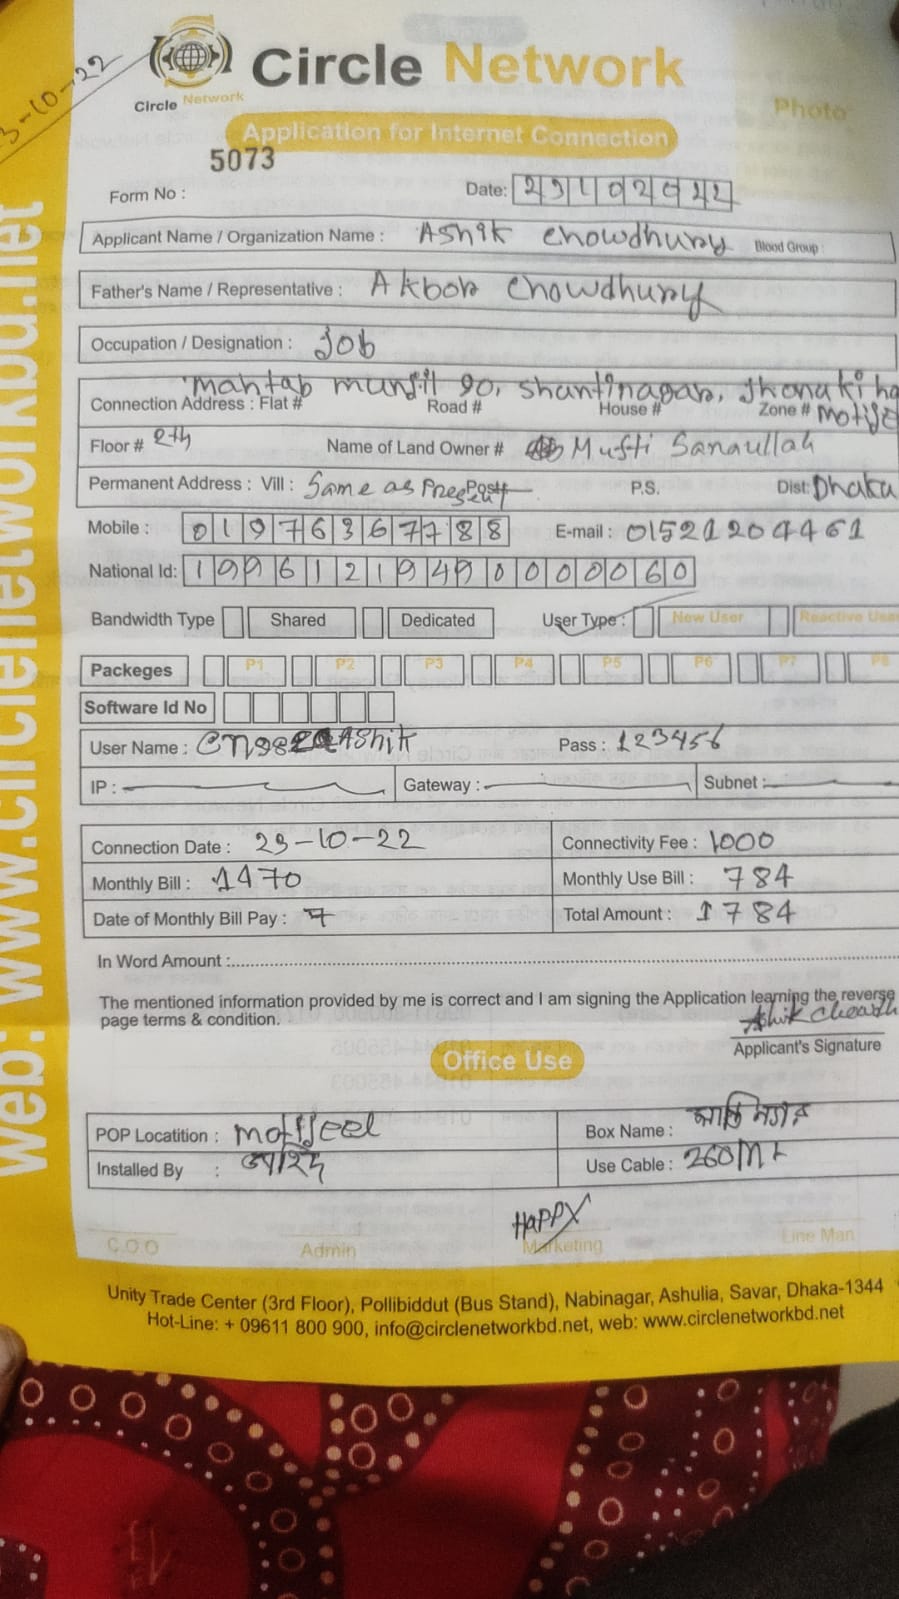 23-10-22
Circle Network
Circle Network
Photo
Application for Internet Connection
5073
Form No :
Date: 23102022
Applicant Name / Organization Name : Ashik Chowdhury Blood Group :
Father's Name / Representative : Akbor Chowdhury
Occupation / Designation : Job
Mahtab 90, Shantinagar,
Connection Address : Flat # Road # House # Zone #
Floor # Name of Land Owner # Mufti Sanaullah
Permanent Address : Vill : Same as Present Post P.S. Dist: Dhaka
Mobile : 01976367788 E-mail : 01521204461
National Id: 19961219490000060
Bandwidth Type Shared Dedicated User Type : New User Reactive User
Packeges P1 P2 P3 P4 P5 P6 P7 P8
Software Id No
User Name : Pass : 123456
IP : Gateway : Subnet :
Connection Date : 23-10-22 Connectivity Fee : 1000
Monthly Bill : 1470 Monthly Use Bill : 784
Date of Monthly Bill Pay : 7 Total Amount : 1784
In Word Amount :
The mentioned information provided by me is correct and I am signing the Application learning the reverse
page terms & condition.
Ashik
Applicant's Signature
Office Use
POP Locatition : Motijeel Box Name : শান্তি নগর
Installed By : Use Cable : 260M
HAPPY
C.O.O Admin Marketing Line Man
Unity Trade Center (3rd Floor), Pollibiddut (Bus Stand), Nabinagar, Ashulia, Savar, Dhaka-1344
Hot-Line: + 09611 800 900, info@circlenetworkbd.net, web: www.circlenetworkbd.net
web: www.circlenetworkbd.net